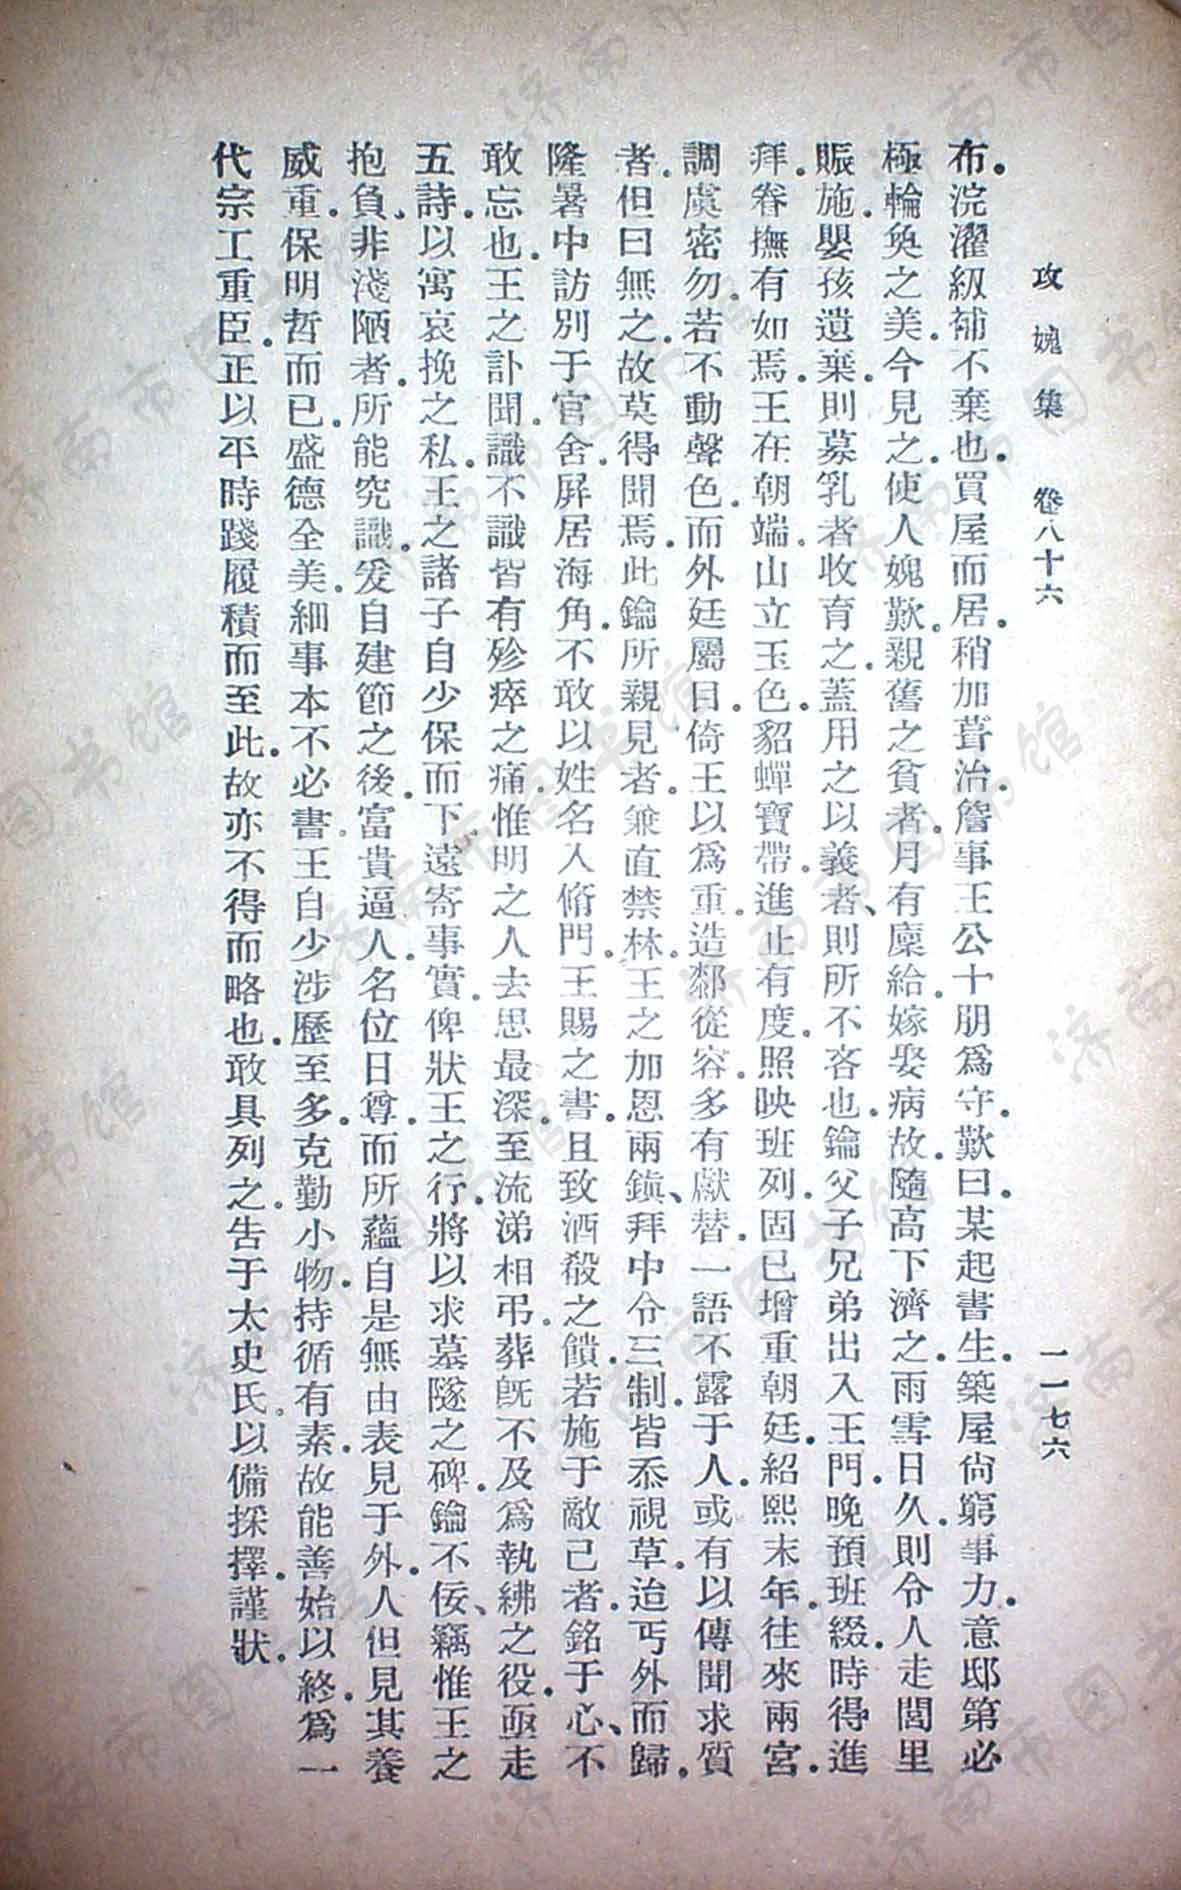 攻媿集 卷八十六 一一七六
布。浣濯級補不棄也。買屋而居。稍加葺治。詹事王公十朋爲守。歎曰。某起書生。築屋尙窮事力。意邸第必
極輪奐之美。今見之。使人媿歎。親舊之貧者。月有廩給。嫁娶病故。隨高下濟之。雨雪日久。則令人走閭里
賑施。嬰孩遺棄。則募乳者收育之。蓋用之以義者、則所不吝也。鑰父子兄弟出入王門。晚預班綴。時得進
拜。眷撫有如焉。王在朝端。山立玉色。貂蟬寶帶。進止有度。照映班列。固已增重朝廷。紹熙末年。往來兩宮。
調虞密勿。若不動聲色。而外廷屬目。倚王以爲重。造䣛從容。多有獻替。一語不露于人。或有以傳聞求質
者。但曰無之。故莫得聞焉。此鑰所親見者。兼直禁林。王之加恩兩鎭、拜中令三制。皆忝視草。迨丐外而歸。
隆暑中訪別于官舍。屛居海角。不敢以姓名入脩門。王賜之書。且致酒殽之饋。若施于敵己者。銘于心、不
敢忘也。王之訃聞。識不識皆有殄瘁之痛。惟明之人去思最深。至流涕相弔。葬旣不及爲執紼之役。亟走
五詩。以寓哀挽之私。王之諸子自少保而下。遠寄事實。俾狀王之行。將以求墓隧之碑。鑰不佞、竊惟王之
抱負、非淺陋者。所能究識。爰自建節之後。富貴逼人。名位日尊。而所蘊自是無由表見于外。人但見其養
威重。保明哲而已。盛德全美。細事本不必書。王自少涉歷至多。克勤小物。持循有素。故能善始以終。爲一
代宗工重臣。正以平時踐履積而至此。故亦不得而略也。敢具列之。告于太史氏。以備採擇。謹狀。